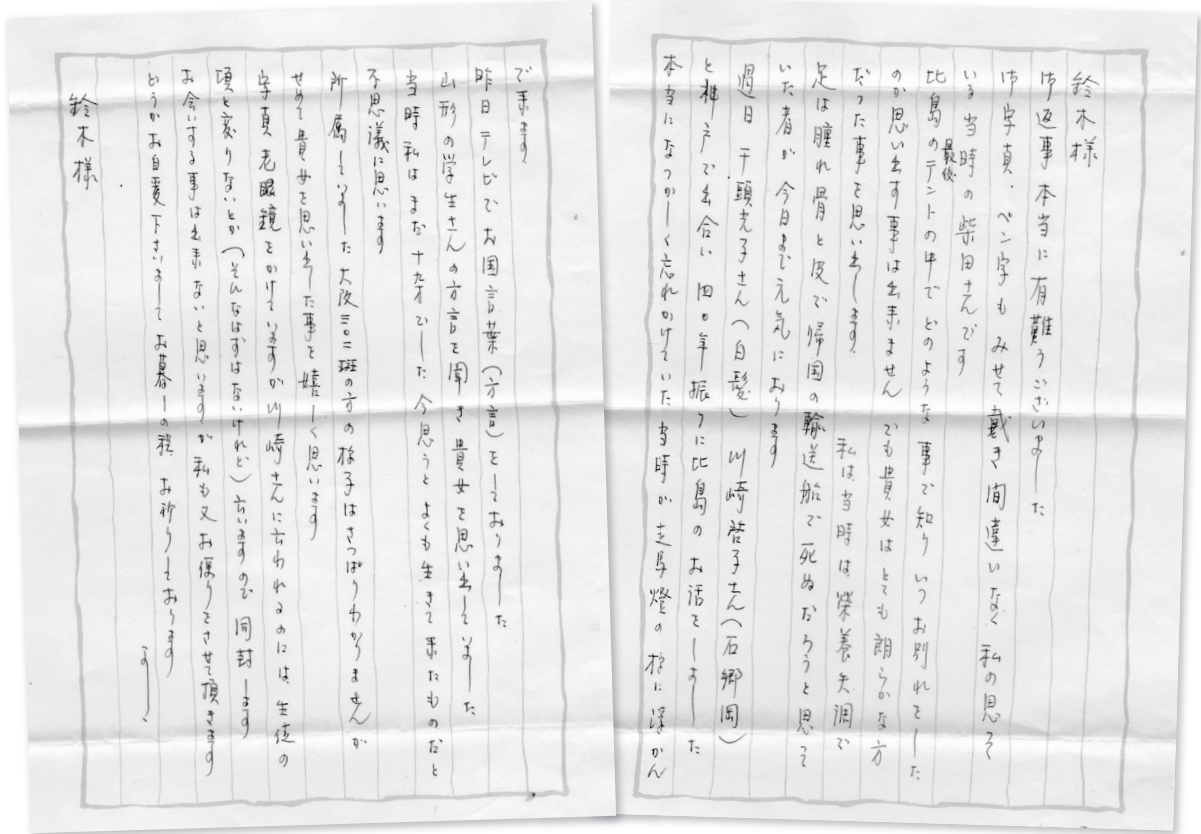 鈴木様
御返事本当に有難うございました
御写真、ペン字もみせて戴き間違いなく私の思って
いる当時の柴田さんです
比島の最後のテントの中でどのような事で知りいつお別れをした
のか思い出す事は出来ません でも貴女はとても朗らかな方
だった事を思い出します 私は当時は栄養失調で
足は腫れ骨と皮で帰国の輸送船で死ぬだろうと思って
いた者が今日まで元気におります
過日 千頭光子さん(白髪)川崎啓子さん(石郷岡)
と神戸で出合い四〇年振りに比島のお話をしました
本当になつかしく忘れかけていた当時が走馬燈の様に浮かん
で来ます
昨日テレビでお国言葉(方言)をしておりました
山形の学生さんの方言を聞き貴女を思い出していました
当時私はまだ十九才でした 今思うとよくも生きて来たものだと
不思議に思います
所属していました大阪三〇二班の方の様子はさっぱりわかりませんが
せめて貴女を思い出した事を嬉しく思います
写真老眼鏡をかけていますが川崎さんに云われるのには、生徒の
頃と変りないとか(そんなはずはないけれど)云いますので同封します
お会いする事は出来ないと思いますが私も又お便りをさせて頂きます
どうかお自愛下さいましてお暮しの程お祈りしております
鈴木様